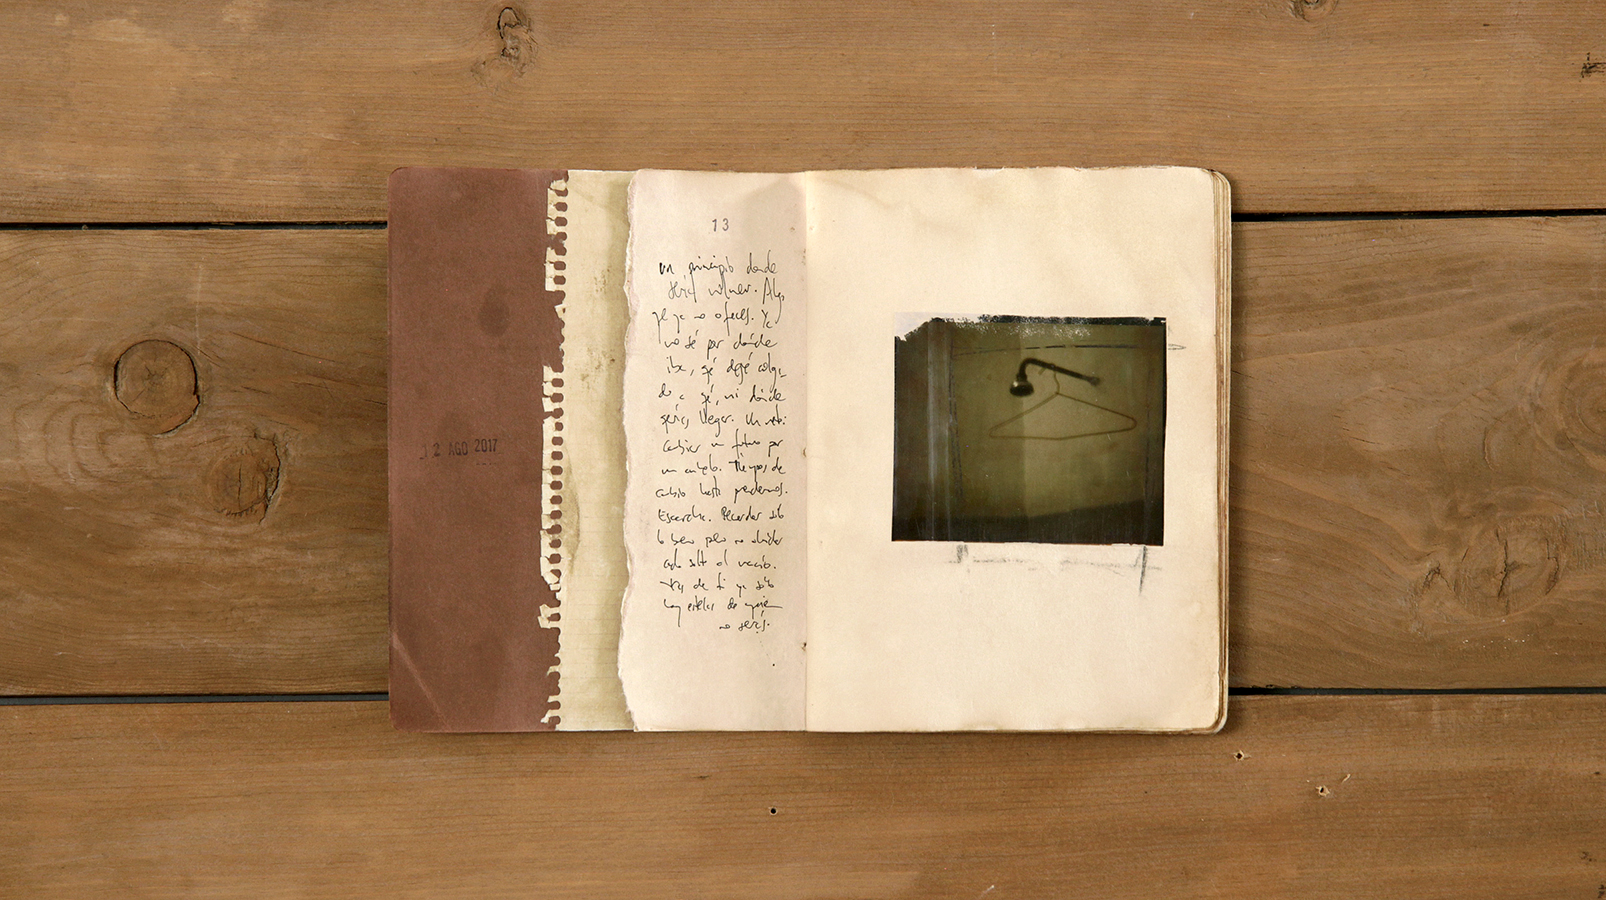 12 AGO 2017
13
un principio donde
sería volver. Algo
que ya no ofreces. Ya
no sé por dónde
iba, qué dejé colga
do a qué, ni dónde
quería llegar. Un
cambiar un futuro por
un anhelo. Tiempos de
cambio hasta perdernos.
Escarcha. Recordar sólo
lo bueno pero no olvidar
cada salto al vacío.
Tras de ti ya sólo
hay estelas de quien
no serás.